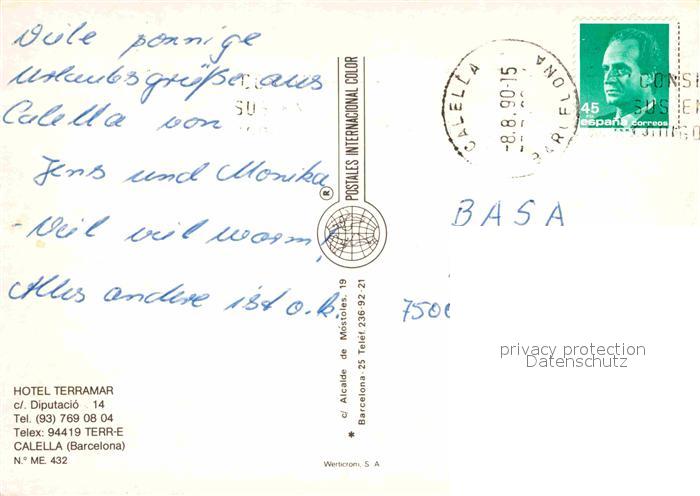 Viele sonnige
Urlaubsgrüße aus
Calella von
Jens und Monika
- Viel viel warm!
Alles andere ist o.k.
HOTEL TERRAMAR
c/. Diputació 14
Tel. (93) 769 08 04
Telex: 94419 TERR-E
CALELLA (Barcelona)
N.º ME. 432
POSTALES INTERNACIONAL COLOR
®
* c/ Alcalde de Móstoles, 19
Barcelona-25 Teléf. 236-92-21
Werticrom, S A
CALELLA
-8.8.90-15
BARCELONA
45
españa correos
CONS
SUS
BASA
750
privacy protection
Datenschutz